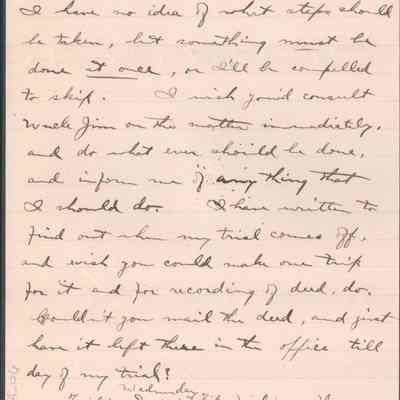 I have no idea of what steps should
be taken, but something must be
done at once, or I'll be compelled
to skip. I wish you'd consult
Uncle Jim on this matter immediately,
and do what ever should be done,
and inform me of anything that
I should do. I have written to
find out when my trial comes off,
and wish you could make one trip
for it and for recording of deed, do.
Couldn't you mail the deed, and just
have it left there in the office till
day of my trial?
Wednesday